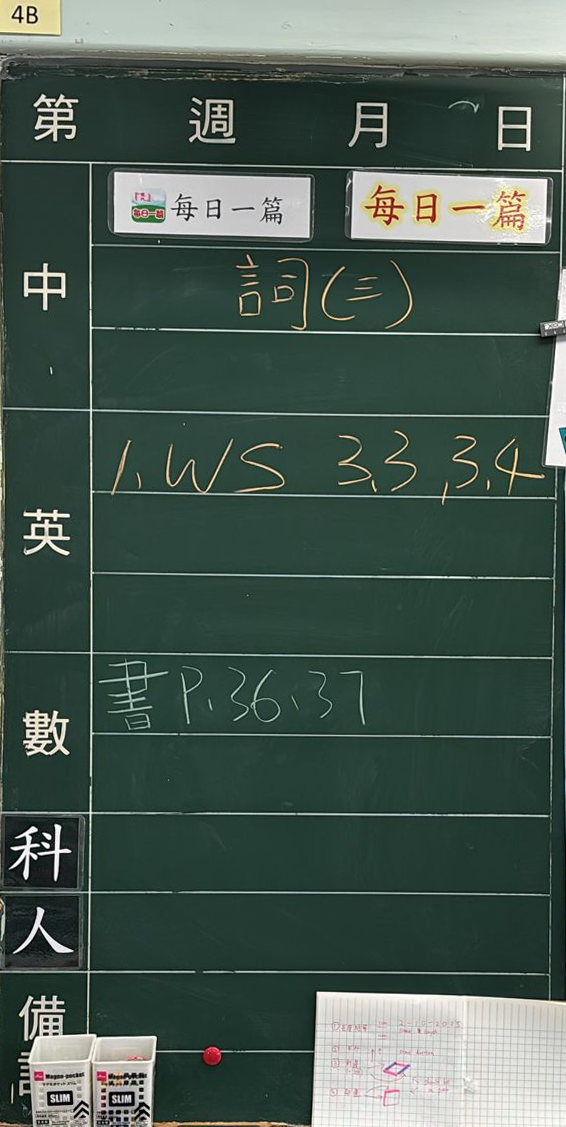 4B
第 週 月 日
每日一篇 每日一篇 每日一篇
中
詞(三)
1. WS 3.3, 3.4
英
書 P.36、37
數
科
人
備
SLIM SLIM